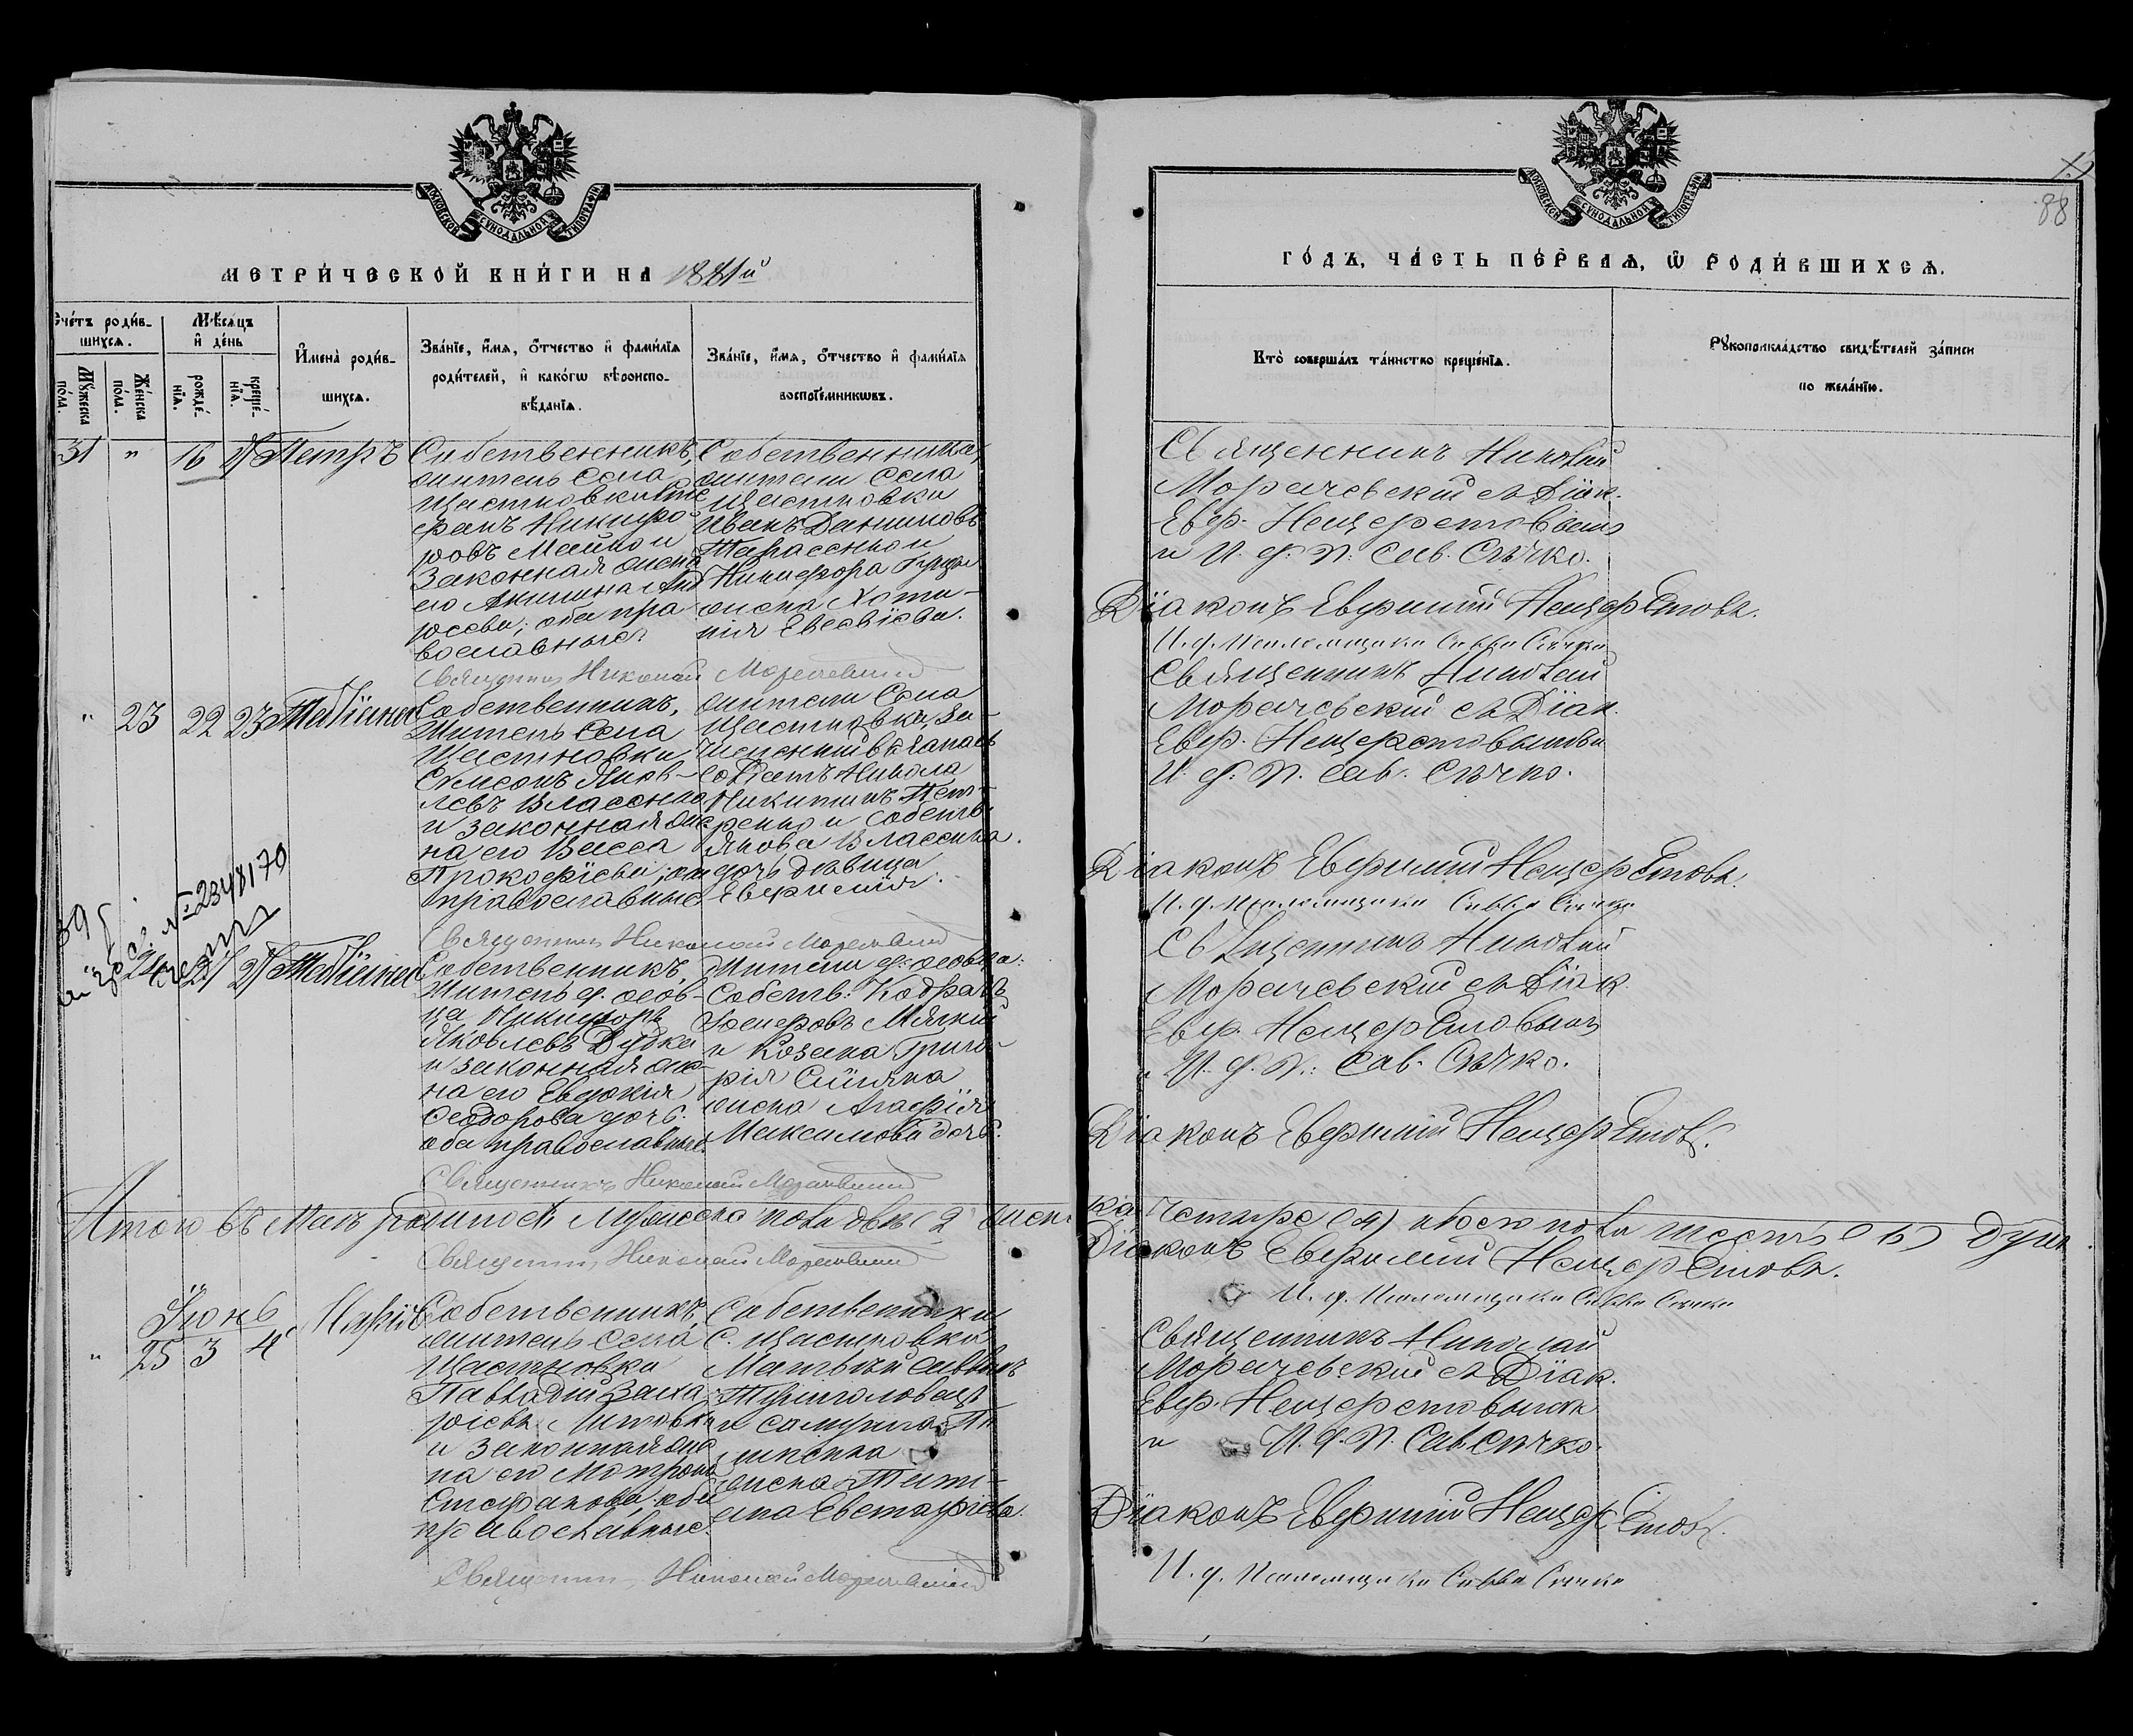 МОСКОВСКОЙ СѴНОДАЛЬНОЙ ТИПОГРАФІИ
МЕТРИ́ЧЕСКОЙ КНИ́ГИ НА 1881й
Счéтъ роди́в-
шихсѧ.
Мꙋ́жеска
по́ла.
Же́нска
по́ла.
Мѣ́сѧцъ
и҆ де́нь
рожде́-
нїѧ.
креще́-
нїѧ.
И҆мена̀ роди́в-
шихсѧ.
Зва́нїе, и҆́мѧ, ѻ҆́тчество и҆ фами́лїѧ
роди́телей, и҆ како́гѡ вѣроиспо-
вѣ́данїѧ.
Зва́нїе, и҆́мѧ, ѻ҆́тчество и҆ фами́лїѧ
воспрїе́мникѡвъ.
31 " 16 Петръ
Собственникъ,
житель села
Щастновки Сте
фанъ Никифо
ровъ Майко и
Законная жена
его Акилина Анд
реева; оба пра
вославные
Собственники,
жители села
Щастновки
Иванъ Данииловъ
Тарасенко и
Никифора
жена Хоти-
нія Евсевіева.
Священникъ Николай Морачевскій
" 23 22 23 Татіана
Собственникъ,
Житель села
Щастновки
Симеонъ Яков-
левъ Власенко
и законная же
на его Васса
Прокофіева; оба
православные
жители Села
Щастновка, За-
Солдатъ Никола
Никитинъ Пет-
ренко и собств.
Якова Власенка
дочь девица
Евфимія.
Священникъ Николай Морачевскій
№ 2348170
24 Татіана
Собственникъ
Житель д. Осов-
ца Никифоръ
Яковлевъ Дудка
и законная же-
на его Евдокія
Ѳеодорова дочь.
оба православные.
Жители д. Осовца:
Собств: Кодратъ
Мягкій
и Козака Григо-
рія
жена Агафія
Максимова дочь.
Священникъ Николай Морачевскій
Итого въ Маѣ родилось мужеска пола двѣ (2) женс
Священникъ Николай Морачевскій
Іюнь
" 25 3 4 Марія
Собственникъ,
житель села
Щастновка
Палладій Заха
ріевъ
и законная же
на его Матрона
Стефанова, оба
православные.
Собственники
с. Щастновка
Матѳій Саввинъ
жена Тати-
ана Евстафіева.
Священникъ Николай Морачевскій
МОСКОВСКОЙ СѴНОДАЛЬНОЙ ТИПОГРАФІИ
88
ГО́ДЪ, ЧА́СТЬ ПЕ́РВАѦ, Ѡ҆ РОДИ́ВШИХСѦ.
Кто̀ соверша́лъ та́инство креще́нїѧ.
Рꙋкоприкла́дство свидѣ́телей за́писи
по жела́нїю.
Священникъ Николай
Морачевскій съ Діак.
Евф. Нещеретовымъ
и И. д. П. Сав. Сѣчко.
Діаконъ Евфимій Нещеретовъ.
И. д. Псаломщика Савва Сѣчко
Священникъ Николай
Морачевскій съ Діак.
Евф. Нещеретовымъ
И. д. П. Сав. Сѣчко.
Діаконъ Евфимій Нещеретовъ.
И. д. Псаломщика Савва Сѣчко
Священникъ Николай
Морачевскій съ Діак.
Евф. Нещеретовымъ
и И. д. П. Сав. Сѣчко.
Діаконъ Евфимій Нещеретовъ.
ка четыре (4) обоего пола шесть (6) душъ.
Діаконъ Евфимій Нещеретовъ.
И. д. Псаломщика Савва Сѣчко
Священникъ Николай
Морачевскій съ Діак.
Евф. Нещеретовымъ
и И. д. П. Сав. Сѣчко.
Діаконъ Евфимій Нещеретовъ.
И. д. Псаломщика Савва Сѣчко